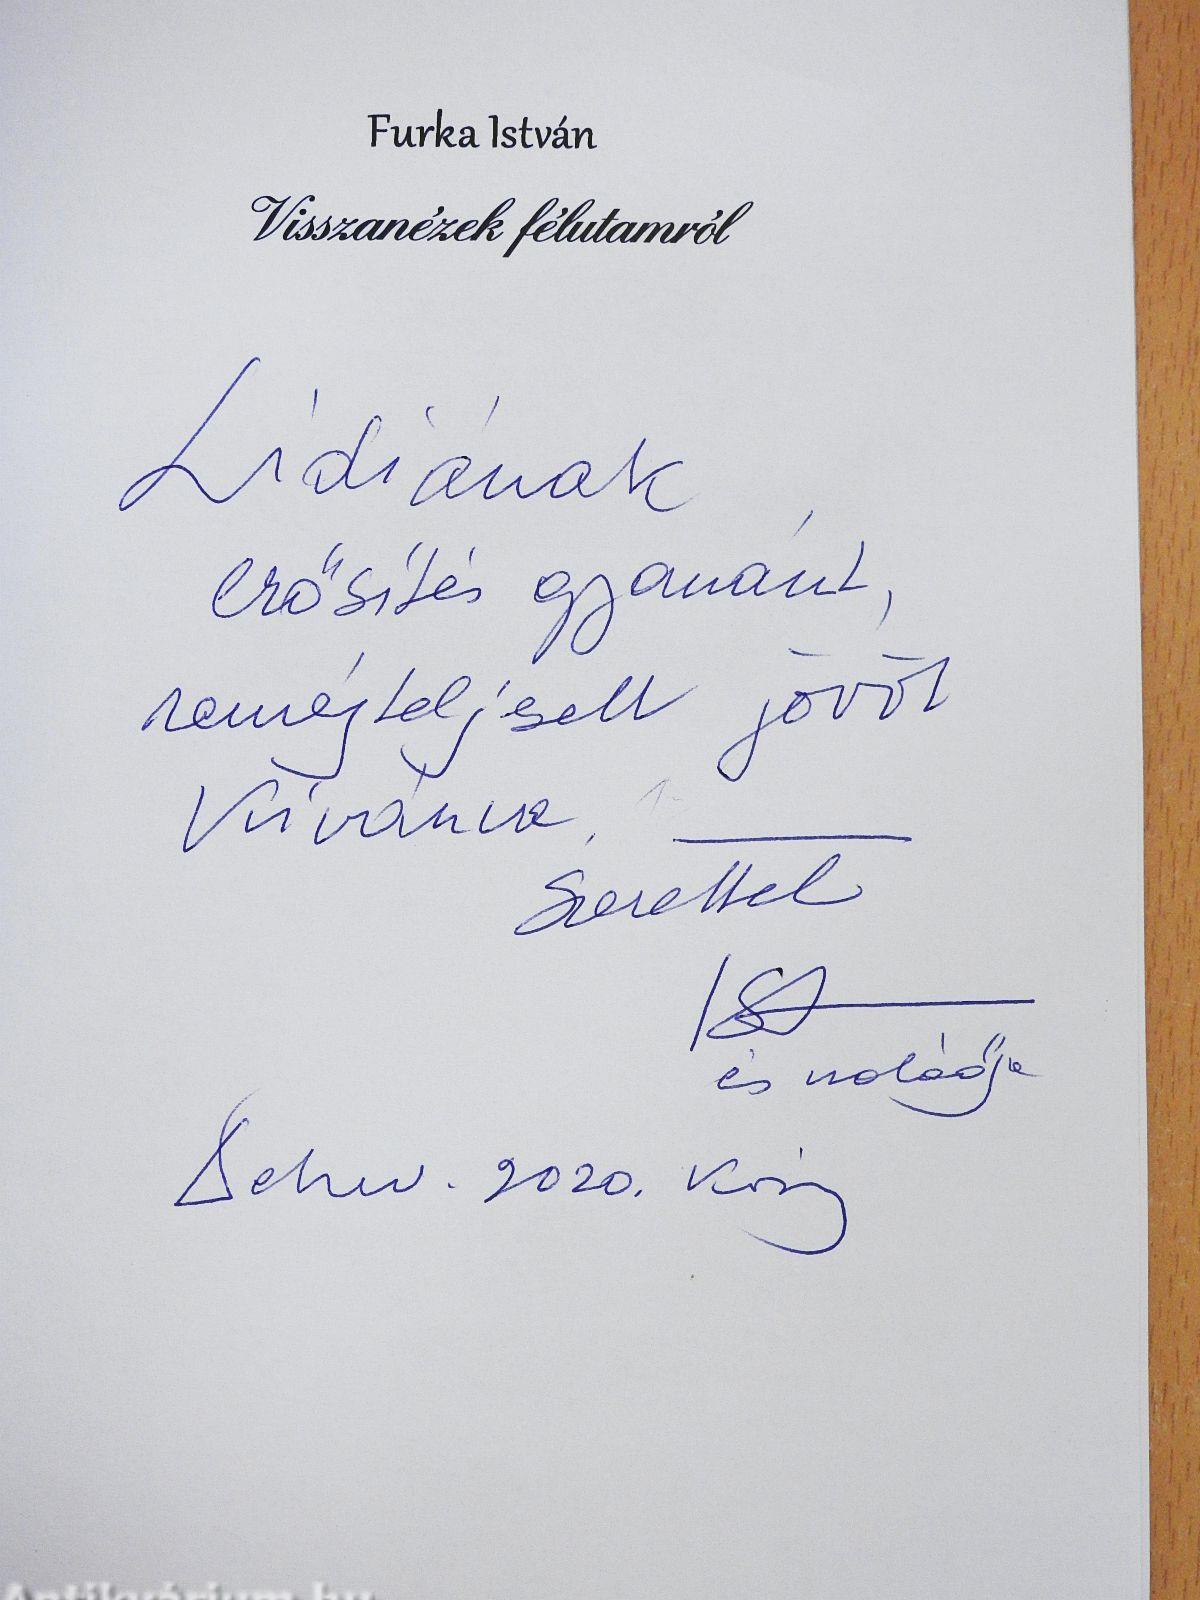 Furka István
Visszanézek félutamról
Lídiának
erősítés gyanánt,
reményteljesett jövőt
kívánva,
Szeretettel
és
2020.
Antikvárium.hu